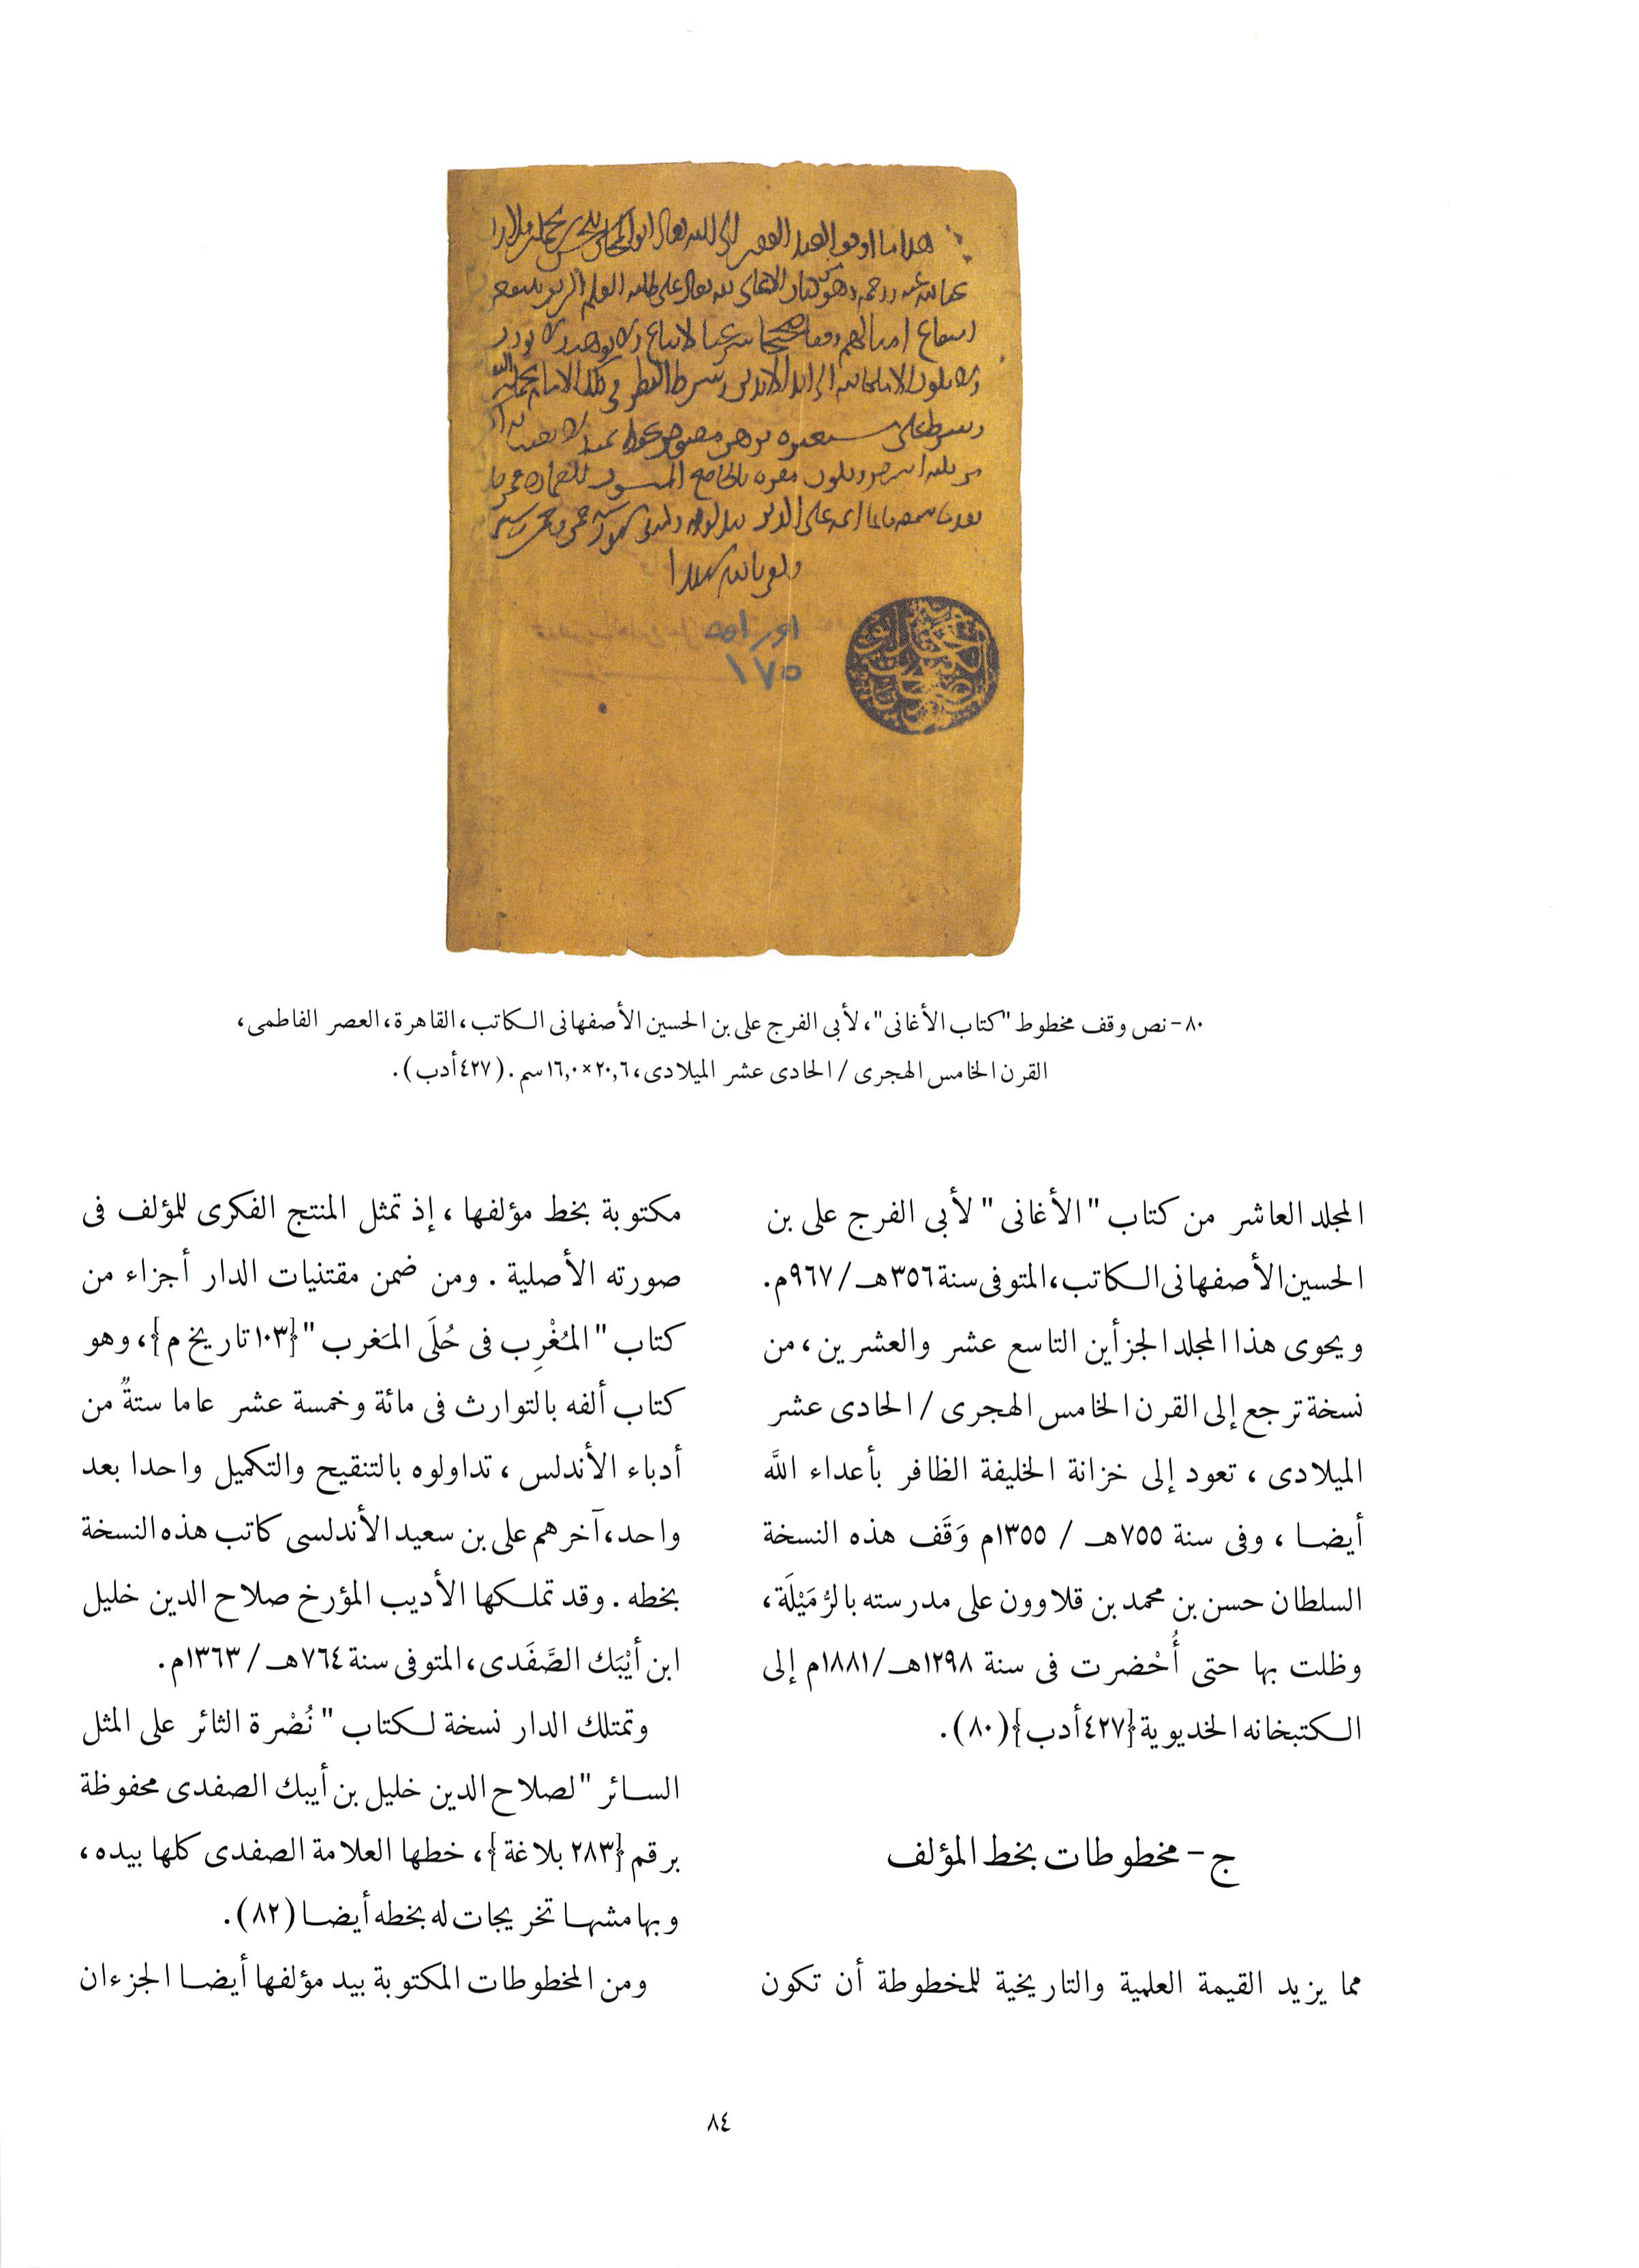 اوراقه
١٧٥
٨٠- نص وقف مخطوط "كتاب الأغانى"، لأبى الفرج على بن الحسين الأصفهانى الكاتب، القاهرة، العصر الفاطمى،
القرن الخامس الهجرى / الحادى عشر الميلادى، ٢٠,٦×١٦,٠سم. (٤٢٧أدب).
المجلد العاشر من كتاب "الأغانى" لأبى الفرج على بن
الحسين الأصفهانى الكاتب، المتوفى سنة ٣٥٦هـ/ ٩٦٧م.
ويحوى هذا المجلد الجزأين التاسع عشر والعشرين، من
نسخة ترجع إلى القرن الخامس الهجرى / الحادى عشر
الميلادى، تعود إلى خزانة الخليفة الظافر بأعداء اللَّه
أيضا، وفى سنة ٧٥٥هـ / ١٣٥٥م وَقَف هذه النسخة
السلطان حسن بن محمد بن قلاوون على مدرسته بالرُّمَيْلَة،
وظلت بها حتى أُحْضرت فى سنة ١٢٩٨هـ/١٨٨١م إلى
الكتبخانه الخديوية {٤٢٧أدب} (٨٠).
ج - مخطوطات بخط المؤلف
مما يزيد القيمة العلمية والتاريخية للمخطوطة أن تكون
مكتوبة بخط مؤلفها، إذ تمثل المنتج الفكرى للمؤلف فى
صورته الأصلية. ومن ضمن مقتنيات الدار أجزاء من
كتاب "المُغْرِب فى حُلَى المَغرب" {١٠٣تاريخ م}، وهو
كتاب ألفه بالتوارث فى مائة وخمسة عشر عاما ستةٌ من
أدباء الأندلس، تداولوه بالتنقيح والتكميل واحدا بعد
واحد، آخرهم على بن سعيد الأندلسى كاتب هذه النسخة
بخطه. وقد تملكها الأديب المؤرخ صلاح الدين خليل
ابن أَيْبَك الصَّفَدى، المتوفى سنة ٧٦٤هـ / ١٣٦٣م.
وتمتلك الدار نسخة لكتاب "نُصْرة الثائر على المثل
السائر" لصلاح الدين خليل بن أيبك الصفدى محفوظة
برقم {٢٨٣ بلاغة}، خطها العلامة الصفدى كلها بيده،
وبهامشها تخريجات له بخطه أيضا (٨٢).
ومن المخطوطات المكتوبة بيد مؤلفها أيضا الجزءان
٨٤